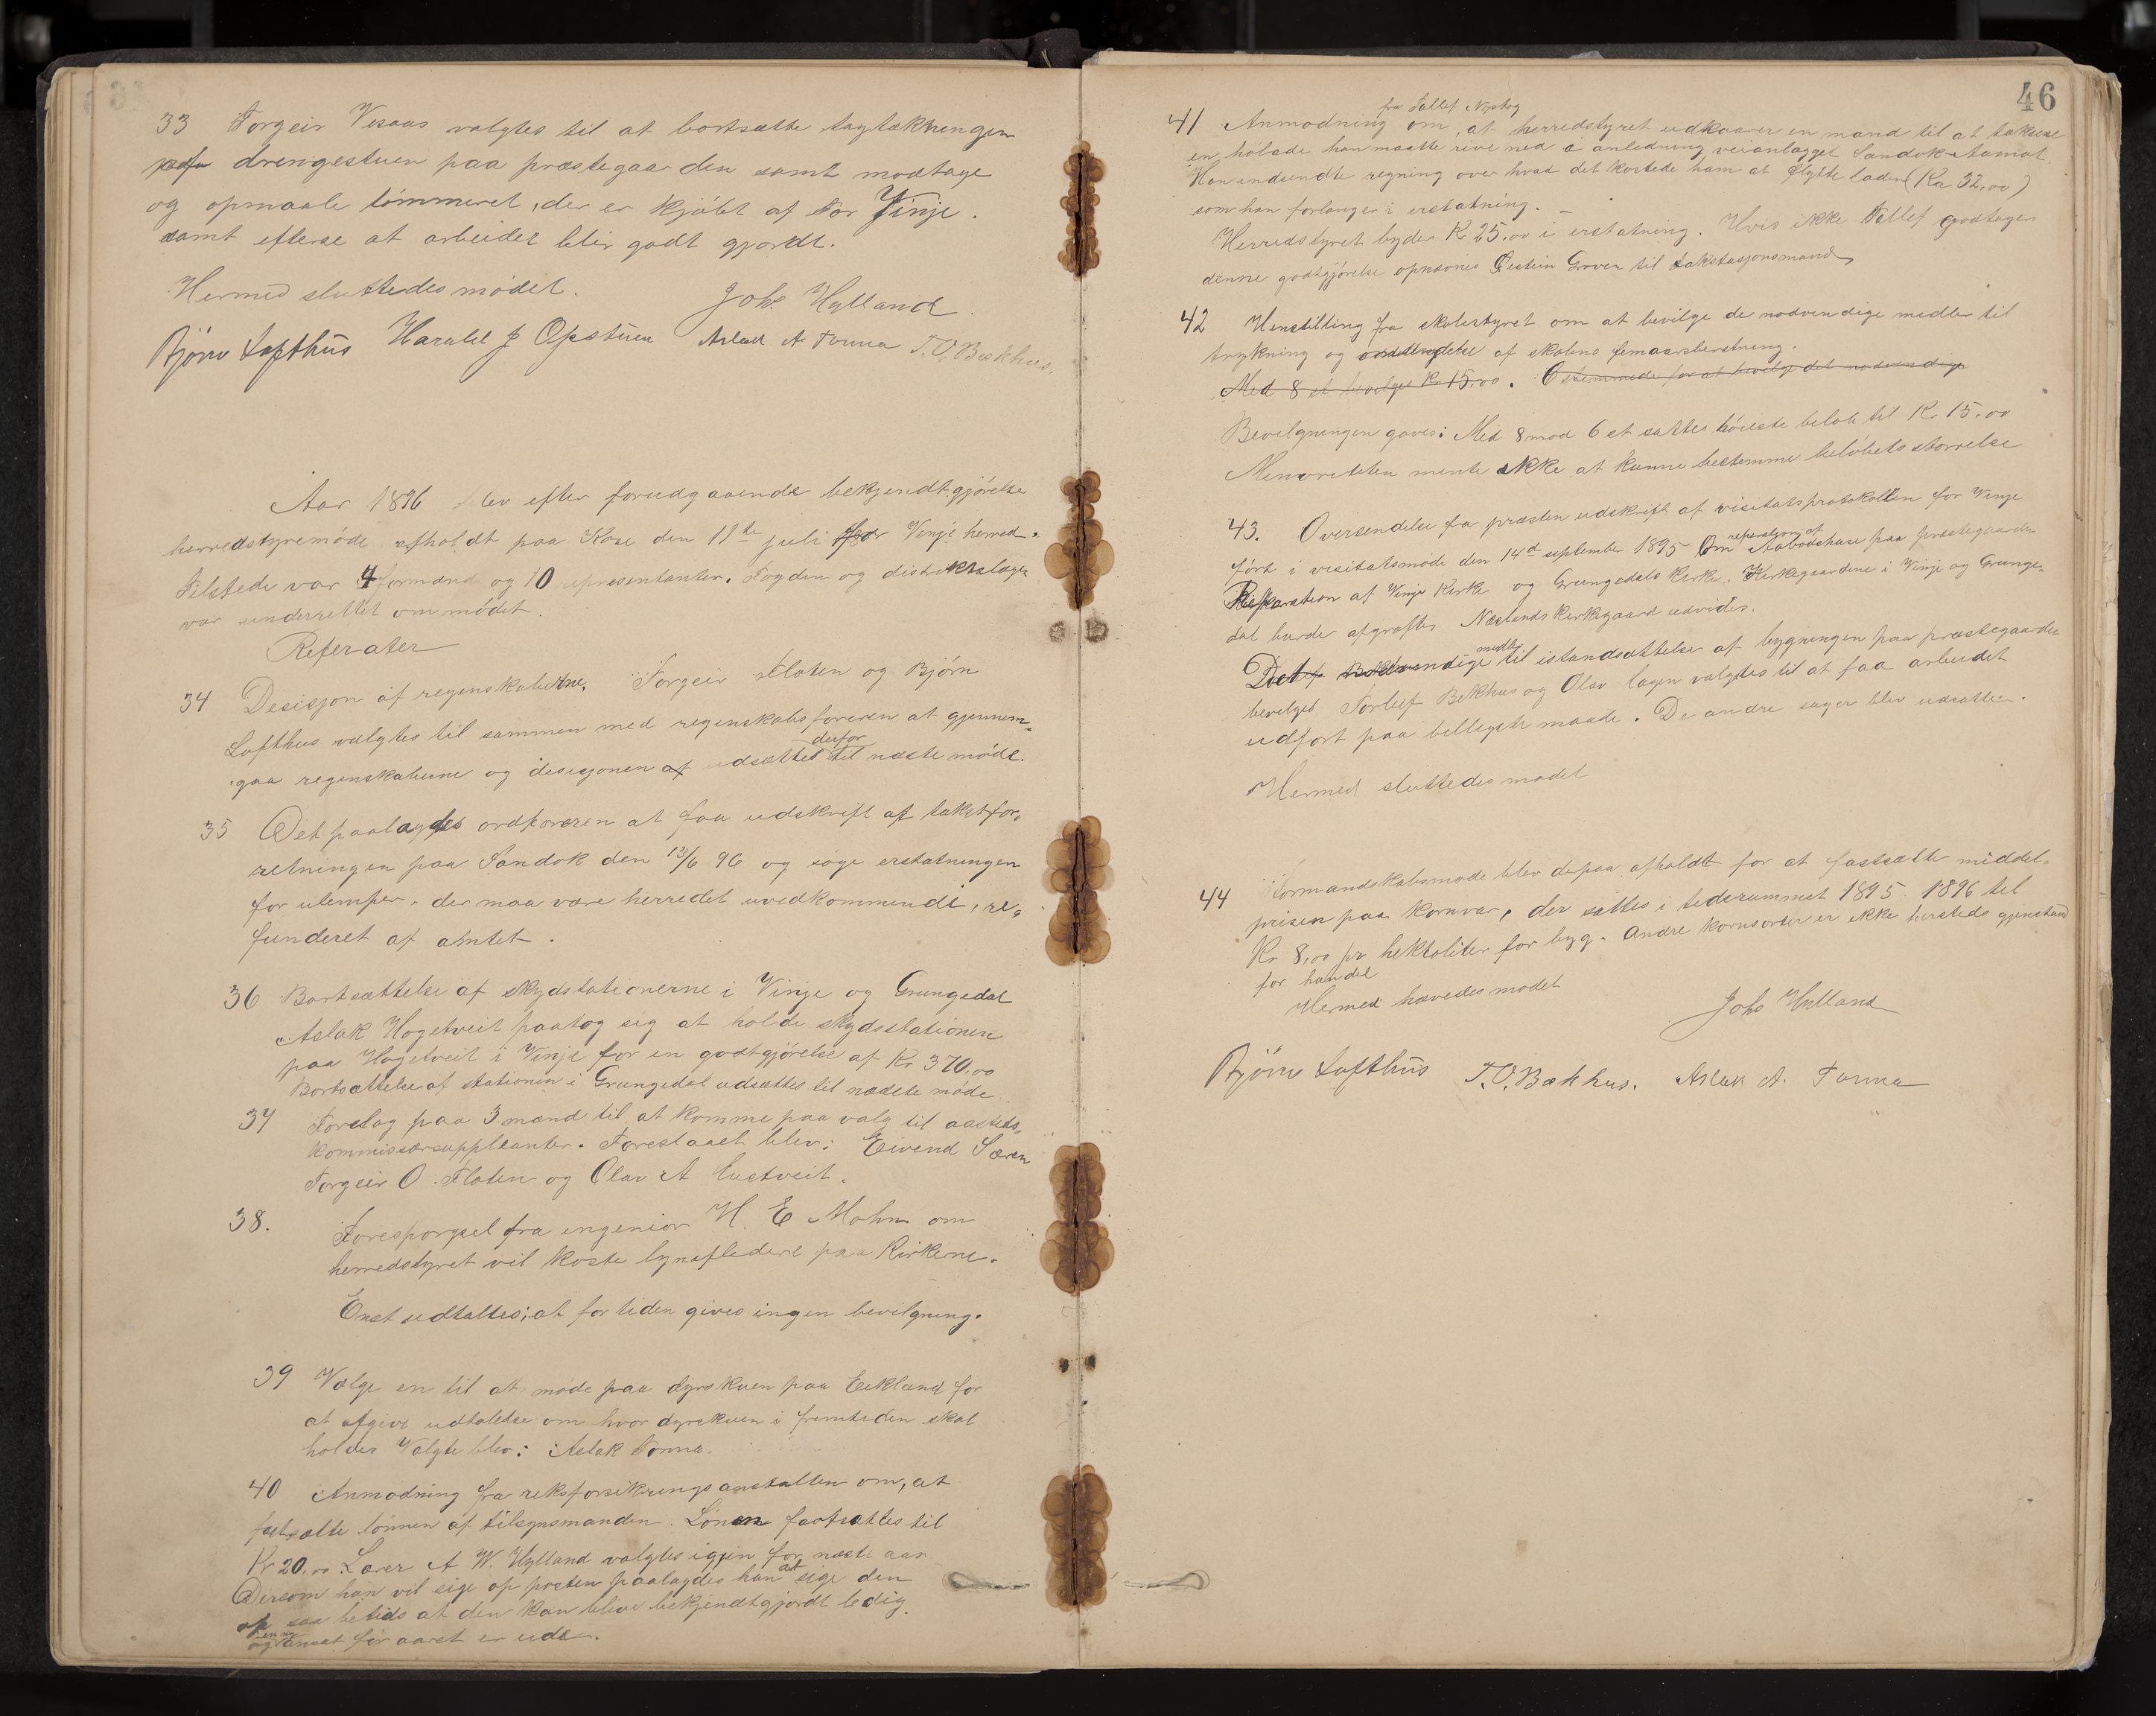 33 Torgeir Vesaas valgtes til at bortsætte tagtækningen
paa drengestuen paa præstegaarden samt modtage
og opmaale tömmeret, der er kjöbt af Tor Vinje.
samt efterse at arbeidet blir godt gjordt.
Hermed sluttedes mödet. Johs Hylland.
Björn Lofthus Harald J Opstuen Aslak A Tonna T.O. Bækhus.
Aar 1896 blev efter forudgaaende bekjendtgjörelse
herredstyremöde afholdt paa Kose den 11te juli for Vinje herred.
Tilstede var 4 formænd og 10 repræsentanter. Fogden og distriktslægen
var underrettet om mödet.
Referater
34 Desisjon af regnskaberne. Torgeir Floten og Björn
Lofthus valgtes til sammen med regnskabsföreren at gjennem-
gaa regnskaberne og desisjonen af udsættes derfor til næste möde.
35 Det paalagdes ordföreren at faa udskrift af takstfor-
retningen paa Sandok den 13/6 96 og söge erstatningen
for ulemper, der maa være herredet uvedkommende, re-
funderet af amtet.
36 Bortsættelse af skydstationerne i Vinje og Grungedal
Aslak Hogetveit paatog sig at holde skydsstationen
paa Hogetveit i Vinje for en godtgjörelse af Kr 370,00
Bortsættelse af stationen i Grungedal udsættes til næste möde.
37 Forslag paa 3 mænd til at komme paa valg til aasteds-
kommissærsuppleanter. Foreslaaet blev: Eivend Særen
Torgeir O. Floten og Olav A
38. Forespörgsel fra ingeniör H. E Mohn om
herredstyret vil koste lynafledere paa Kirkerne.
Enst udtaltes: at for tiden gives ingen bevilgning.
39 Vælge en til at möde paa dyrskuen paa Eekland for
at afgive udtalelse om hvor dyrskuen i fremtiden skal
holdes Valgte blev: Aslak Tonna.
40 Anmodning fra riksforsikringsanstalten om, at
fastsætte lönnen af tilsynsmanden. Lönen fastsættes til
Kr 20.00. Lærer A W. Hylland valgtes igjen for næste aar
Dersom han vil sige op posten paalagdes han at sige den
op saa betids at den kan blive bekjendtgjordt ledig
og ansat för aaret er ude.
46
41 Anmodning fra Tallef Nystog om, at herredstyret udkaarer en mand til at taksere
en hölade han maatte rive ned a anledning veianlægget Sandok-Aamot.
Han indsendte regning over hvad det kostede ham at flytte laden (Kr 32,00)
som han forlanger i erstatning.
Herredstyret byder Kr 25.00 i erstatning. Hvis ikke Tallef godtager
denne godtgjörelse opnævnes Östein Grover til takstasjonsmand
42 Henstilling fra skolestyret om at bevilge de nödvendige midler til
trykning og af skolens femaarsberetning.
Med 8 st bevilges Kr 15.00. 6 stemmede for at bevilge det nödvendige
Bevilgningen gaves: Med 8 mod 6 st sattes höieste belöb til Kr. 15.00
Menoriteten mente ikke at kunne bestemme belöbets störrelse
43. Oversendelse fra præsten udskrift af visitatsprotokollen for Vinje
fört i visitatsmöde den 14de september 1895 Om reparasjon af Aabodshuse paa præstegaarden
Reparation af Vinje Kirke og Grungedals Kirke. Kirkegaardene i Vinje og Grunge-
dal burde afgröftes Næslands kirkegaard udvides.
Det nödvendige midler til istandsættelse af bygningen paa præstegaarden
bevilges Torleif Bekhus og Olav valgtes til at faa arbeidet
udfört paa billigste maade. De andre sager blev udsatte.
Hermed sluttedes mödet
44 Formandskabsmöde blev depaa afholdt for at fastsætte middel-
prisen paa kornvar, der sattes i tidsrummet 1895 1896 til
Kr 8,00 pr hektoliter for byg. Andre kornsorter er ikke hersteds gjenstand
for handel
Hermed hævedes mödet
Johs Hylland
Björn Lofthus T.O. Bækhus. Aslak A. Tonna